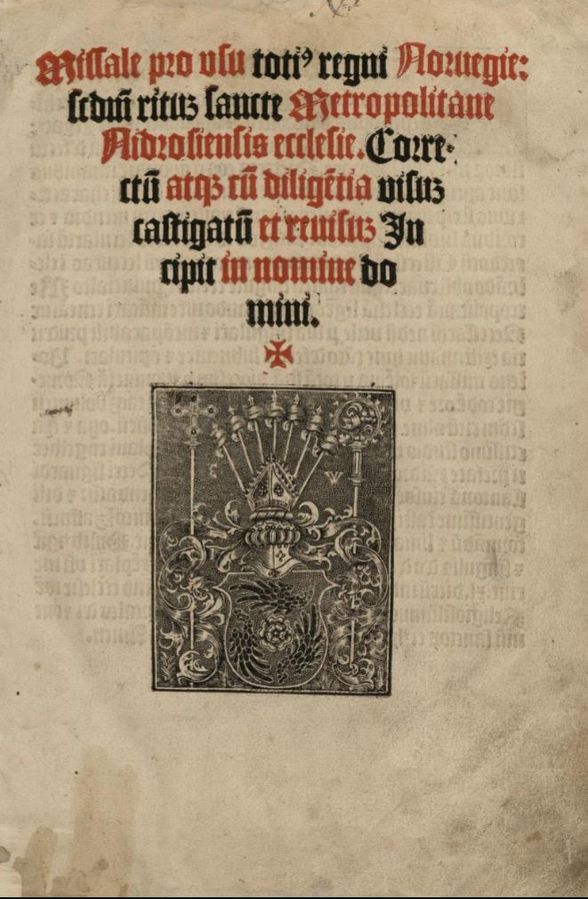 Missale pro vsu totiꝰ regni Noruegie:
scdm̄ rituꝫ sancte Metropolitane
Nidrosiensis ecclesie. Corre-
ctū atqꝫ cū diligētia visuꝫ
castigatū et reuisuꝫ In
cipit in nomine do
mini.
E W